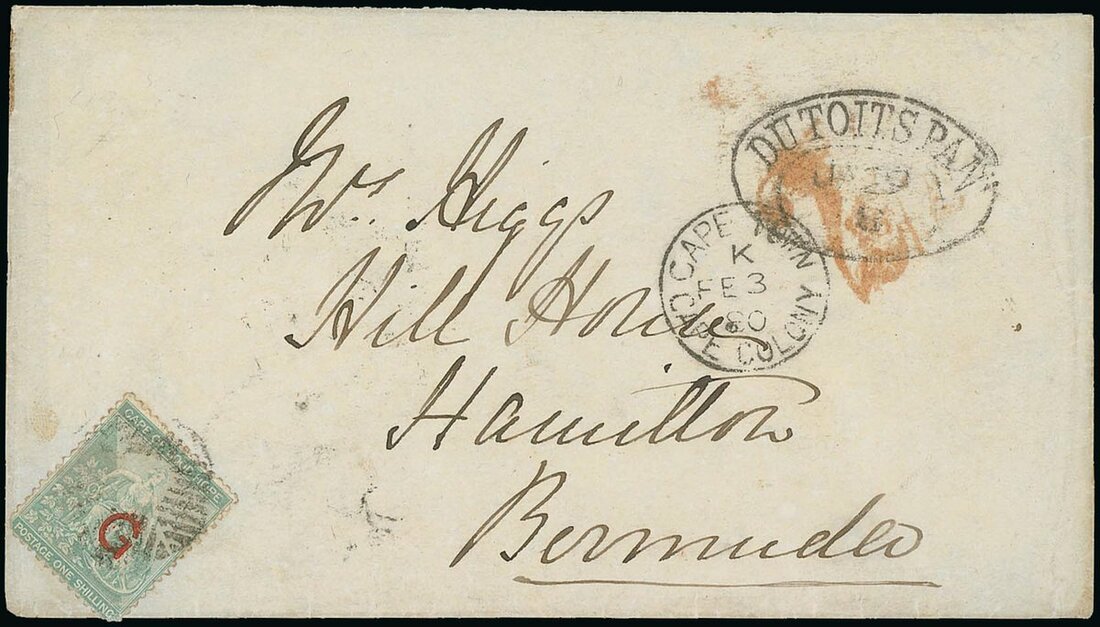 DUTOITSPAN
29
CAPE TOWN
K
FE 3
80
CAPE COLONY
Mrs. Higgs
Hill House
Hamilton
Bermuda
CAPE OF GOOD HOPE
G
POSTAGE ONE SHILLING